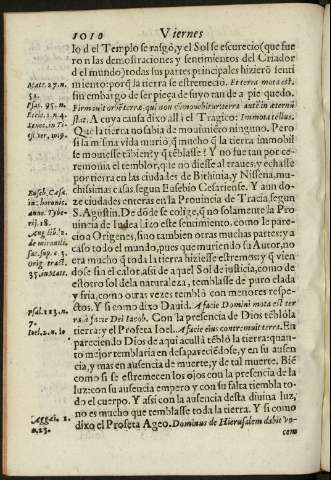 1010 Viernes
lo d el Templo se rasgò, y el Sol se escurecio (que fue
ron las demostraciones y sentimientos del Criador
d el mundo) todas sus partes principales hizierõ senti
miento: porq̃ la tierra se estremecio. Et terra mota est.
sin embargo de ser pieça de suyo tan de a pie quedo.
Firmauit orbẽ terræ, qui non
sta: A cuya causa dixo allì el Tragico: Immota tellus.
Que la tierra no sabia de mouimiẽto ninguno. Pero
si la misma vida muriò, q̃ mucho q̃ la tierra immobil
se mouiesse tãbien? y q̃ tẽblasse? Y no fue tan por ce-
remonia el temblor, q̃ no diesse al traues, y echasse
por tierra en las ciudades de Bithinia, y Nissena, mu-
chissimas casas, segun Eusebio Cesariense. Y aun do-
ze ciudades enteras en la Prouincia de Tracia, segun
S. Agustin. De dõde se colige, q̃ no solamente la Pro
uincia de Iudea hizo este sentimiento, como le pare-
cio a Origenes, sino tambien otras muchas partes: y a
caso todo el mundo, pues que muriendo su Autor, no
era mucho q̃ toda la tierra hiziesse estremos: y q̃ vien
dose sin el calor, assi de aquel Sol de justicia, como de
estotro sol de la naturaleza, temblasse de puro elada
y fria, como otras vezes temblò con menores respe-
ctos. Y si como dixo Dauid. A facie Domini mota est ter
ra à facie Dei Iacob. Con la presencia de Dios tẽblò la
tierra: y el Profeta Ioel. A facie eius contremuit terra. En
pareciendo Dios de aqui aculla tẽblò la tierra: quan-
to mejor temblaria en desapareciẽdose, y en su ausen
cia, y mas en ausencia de muerte, y de tal muerte. Biẽ
como si se estremecen los ojos con la presencia de la
luz: con su ausencia empero y con su falta tiembla to-
do el cuerpo. Y assi con la ausencia desta diuina luz,
no es mucho que temblasse toda la tierra. Y si como
dixo el Profeta Ageo. Dominus de Hierusalem dabit vo-
cem
Matt. 27. n.
51.
Psal. 95. n.
Eccle. 1. n. 4.
Euseb. Cæsa.
in
anno. Tybe-
rij. 18.
Aug. lib. 2.
de mirabil.
sac. scrip. c. 3.
Orig. tract.
35. in Matt.
Psal. 113. n.
7.
Ioel. 2. n. 10
Aggæi. 2.
n. 23.